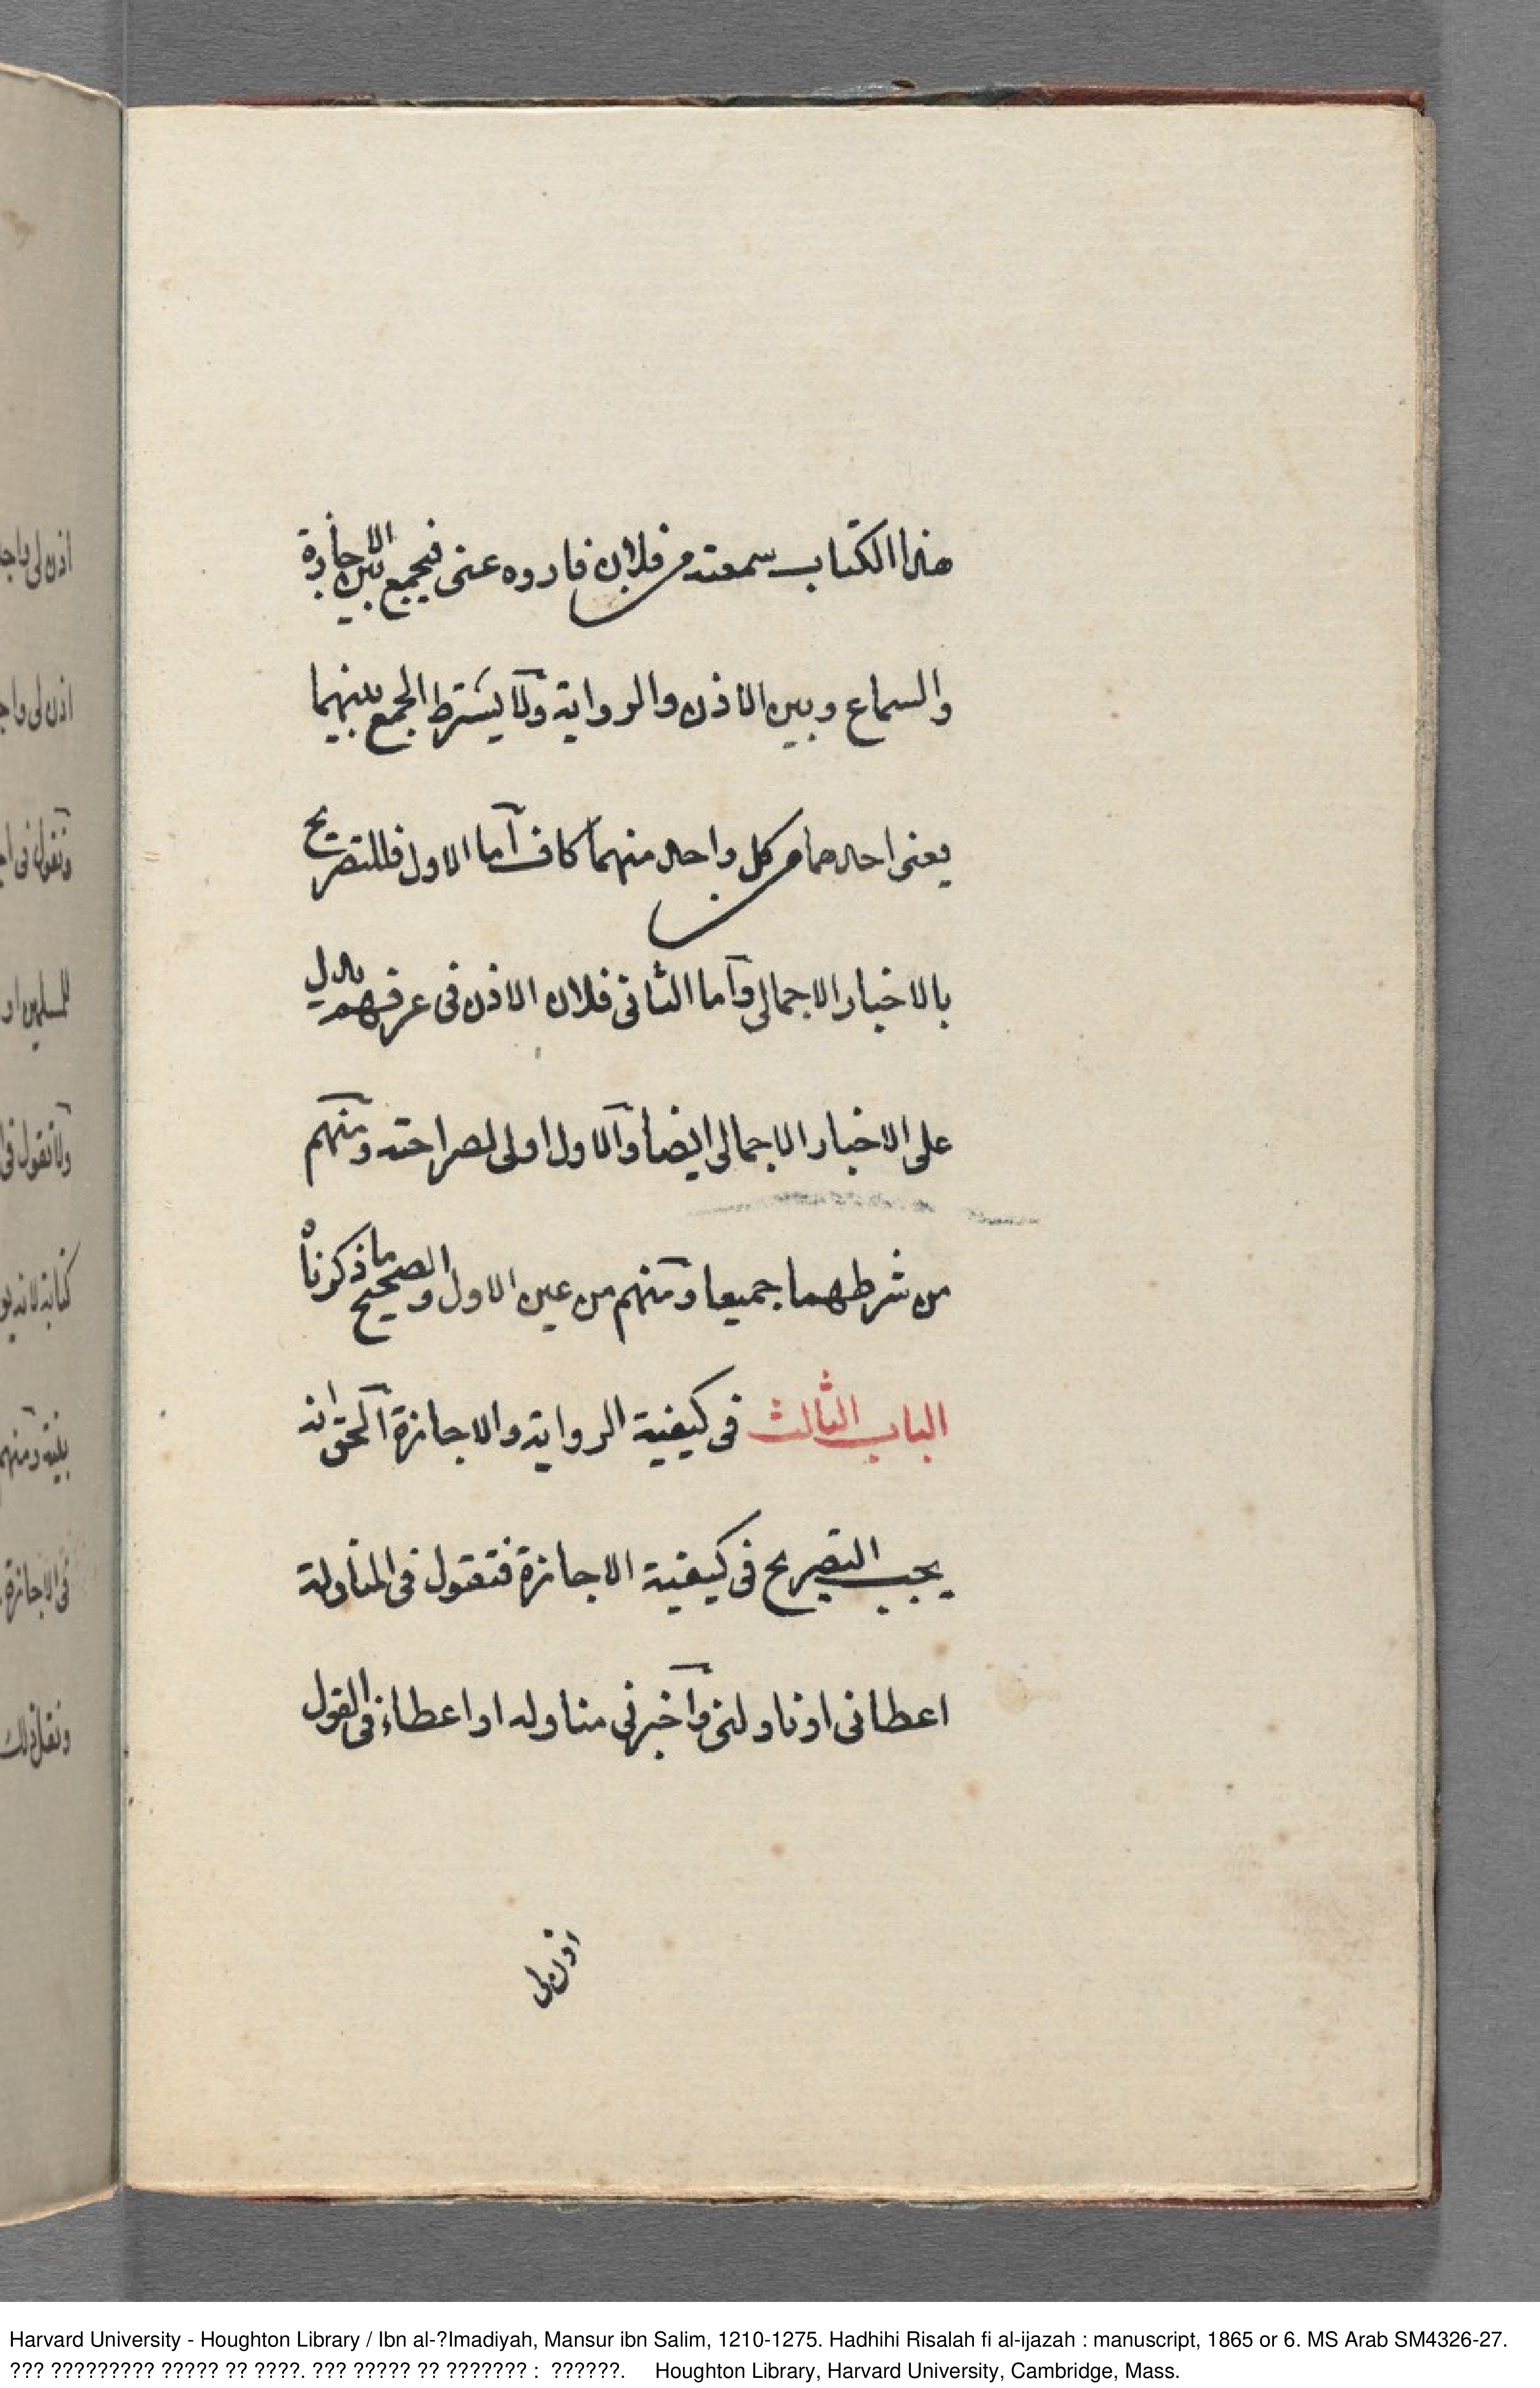 هذا الكتاب سمعته من فلان فاروه عنى فيجمع بين الاجازة
والسماع وبين الاذن والرواية ولا يشترط الجمع بينهما
يعنى احدهما من كل واحد منهما كاف اما الاول فللتصريح
بالاخبار الاجمالى واما الثانى فلان الاذن فى عرفهم يدل
على الاخبار الاجمالى ايضا والاول اولى لصراحته ومنهم
من شرطهما جميعا ومنهم من عين الاول والصحيح ما ذكرناه
الباب الثالث فى كيفية الرواية والاجازة الحق انه
يجب التصريح فى كيفية الاجازة فتقول فى المناولة
اعطانى او ناولنى واخبرنى مناوله او اعطاء فى القول
اذن لى
اذن لى واجا
اذن لى واجا
وتقول فى ا
للمسلمين او
ولا تقول فى
كتابة لانه
ومنهم
فى الاجازة
ونقل ذلك
Harvard University - Houghton Library / Ibn al-?Imadiyah, Mansur ibn Salim, 1210-1275. Hadhihi Risalah fi al-ijazah : manuscript, 1865 or 6. MS Arab SM4326-27.
??? ????????? ????? ?? ????. ??? ????? ?? ??????? : ??????. Houghton Library, Harvard University, Cambridge, Mass.